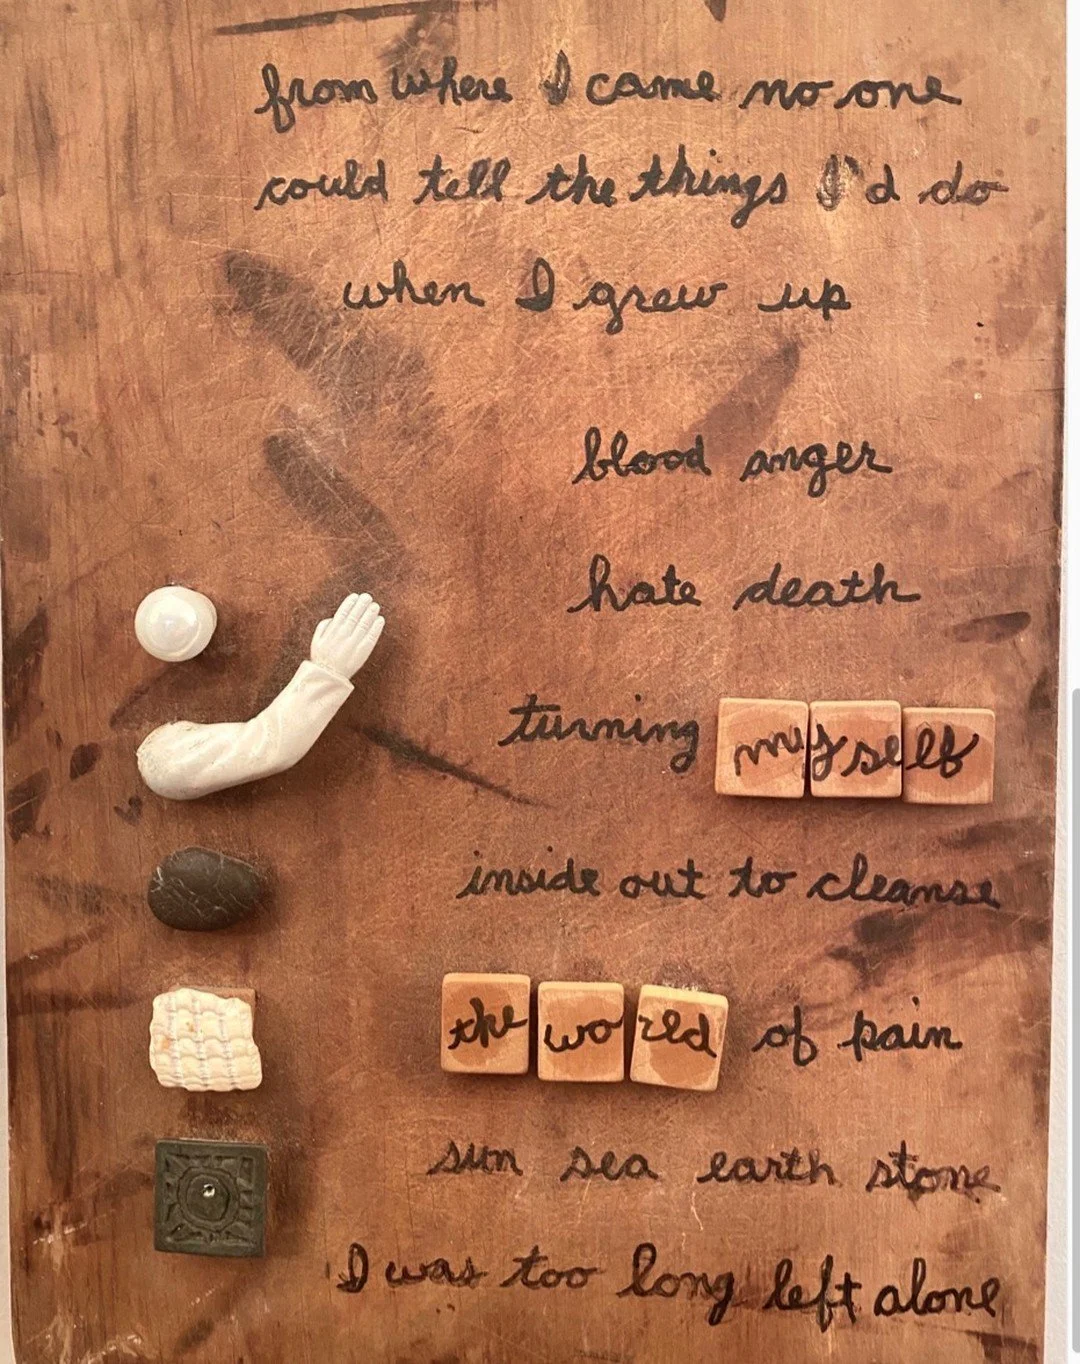 from where I came no one
could tell the things I'd do
when I grew up
blood anger
hate death
turning myself
inside out to cleanse
the world of pain
sun sea earth stone
I was too long left alone